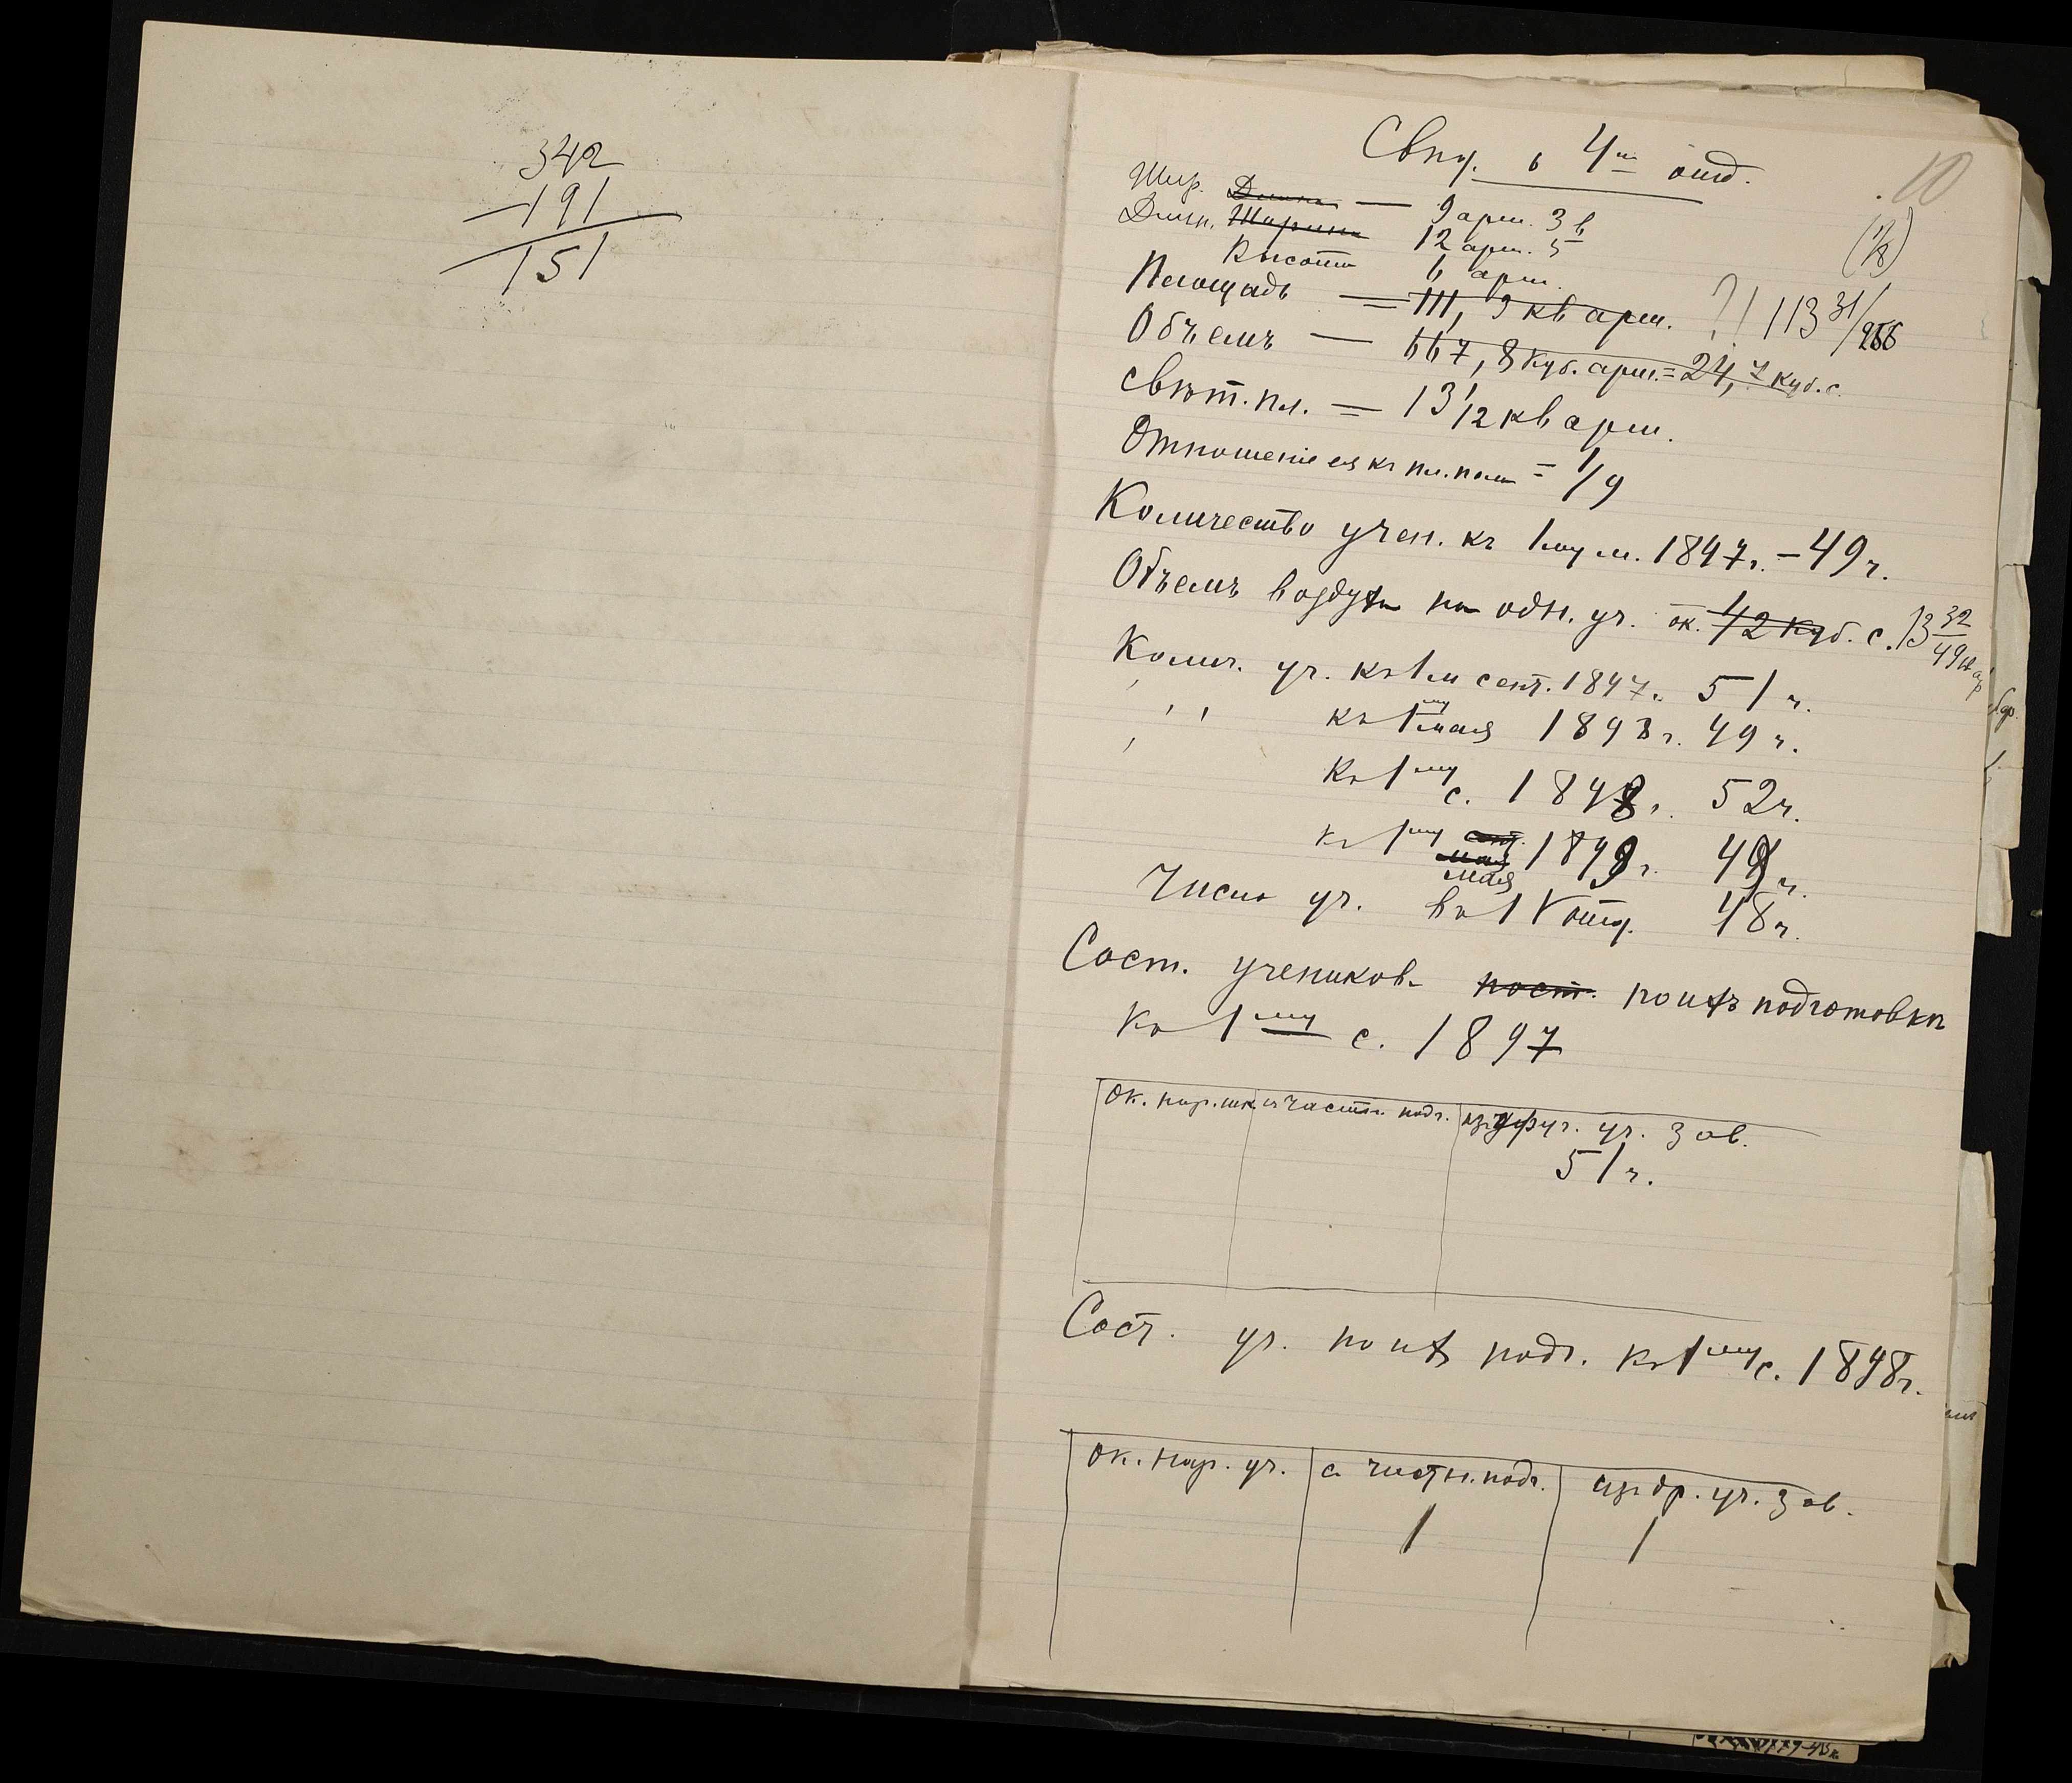 342
—191
151
10
Свѣд. о 4мъ отд.
Шир. Длина — 9 арш. 3 в
Длин. Ширина 12 арш. 5
Высота 6 арш.
(1/8)
Площадь = 111,9 кв арш. ?! 113 31/256
Объемъ — 667,8 куб. арш. = 24,7 куб. с.
Свѣт. пл. = 13 1/12 кв арш.
Отношеніе ея къ пл. пола = 1/9
Количество учен. къ 1му м. 1897 г. – 49 ч.
Объемъ воздуха на одн. уч. ок. 1/2 куб. с. 13 32/49 к. ар
Колич. уч. къ 1 м сент. 1897 г. 51 ч.
къ 1му мая 1898 г. 49 ч.
къ 1му с. 1898 г. 52 ч.
къ 1му сент. мая 1899 г. 49 ч.
мая
Число уч. въ IV отд. 48 ч.
Сост. учениковъ пост. по ихъ подготовкѣ
къ 1му с. 1897
ок. нар. шк. съ частн. подг. изъ друг. уч. зав.
51 ч.
Сост. уч. по ихъ подг. къ 1му с. 1898 г.
ок. нар. уч. съ частн. подг. изъ др. уч. зав.
1 1